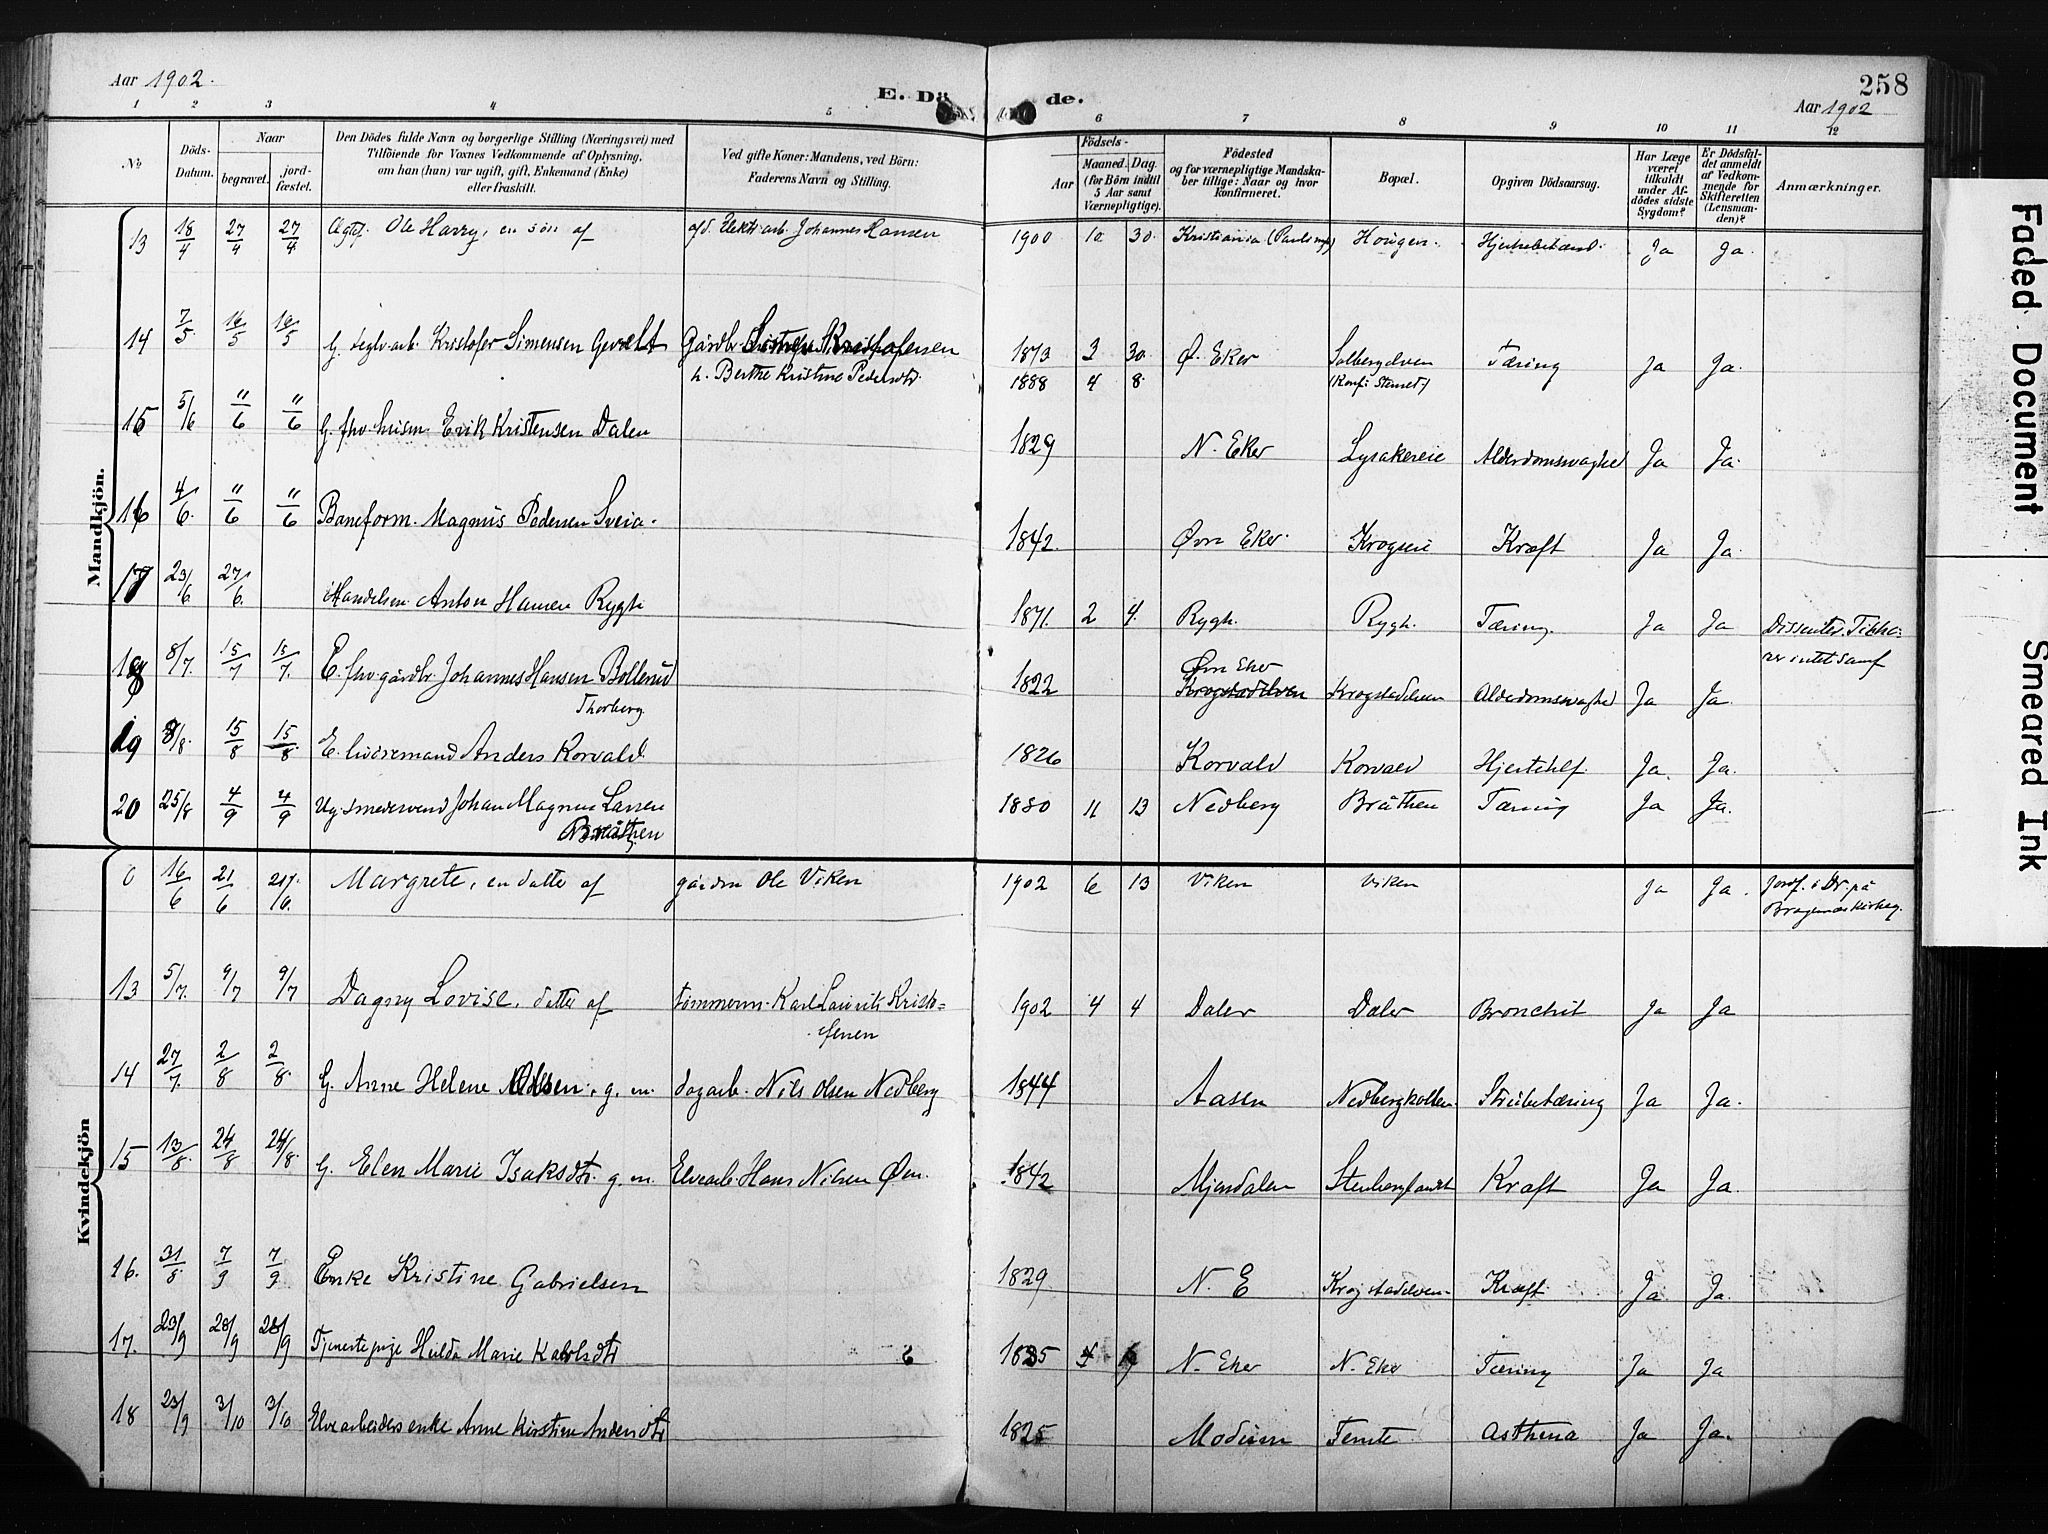 Aar 1902.
E. Dö de.
258
Aar 1902
1 2 3 4 5 6 7 8 9 10 11 12
No
Döds-Datum.
Naar
begravet.
jord-fæstet.
Den Dödes fulde Navn og borgerlige Stilling (Næringsvei) med
Tilföiende for Voxnes Vedkommende af Oplysning,
om han (hun) var ugift, gift, Enkemand (Enke)
eller fraskilt.
Ved gifte Koner: Mandens, ved Börn:
Faderens Navn og Stilling.
Födsels-
Aar
Maaned. Dag.
(for Börn indtil
5 Aar samt
Værnepligtige).
Födested
og for værnepligtige Mandska-
ber tillige: Naar og hvor
konfirmeret.
Bopæl.
Opgiven Dödsaarsag.
Har Læge
været
tilkaldt
under Af-
dödes sidste
Sygdom?
Er Dödsfal-
det anmeldt
af Vedkom-
mende for
Skifteretten
(Lensman-
den)?
Anmærkninger.
Mandkjön.
13 18/4 27/4 27/4 Ole Harry, en sön af Johannes Hansen 1900 10 30 Kristiania Hougen Ja Ja.
14 7/5 16/5 16/5 G. Kristofer Simensen Gårdbr. 1873 3 30 Ø. Eker Solbergelven Tæring Ja Ja.
h. Berthe Kristine Pedersdt. 1888 4 8
15 5/6 11/6 11/6 G. fhv. husm. Erik Kristensen Dalen 1829 N. Eker Lysakereie Alderdomssvaghed Ja Ja.
16 4/6 11/6 11/6 Baneform. Magnus Pedersen Sveia. 1842. Øvn Eker Krogseie Kræft Ja Ja.
17 23/6 27/6 Anton Hansen Rygh 1871. 2 4. Rygh. Rygh. Tæring. Ja Ja Dissenter.
samf
18 8/7. 15/7 15/7. E. fhv. gårdbr. Johannes Hansen Bollerud
Thorberg 1822 Øvn Eker
Krogstadelven Krogstadelven Alderdomssvaghed Ja Ja.
19 8/8. 15/8 15/8. E. Anders Korvald. 1826 Korvald Korvald Ja. Ja.
20 25/8 4/9 4/9 Ug. smedesvend Johan Magnus Larsen
Bråthen 1880 11 13 Nedberg Bråthen Tæring Ja Ja.
Kvindekjön
0 16/6 21/6 Margrete, en datter af gårdm Ole Viken 1902 6 13 Viken Viken Ja Ja. Jordf. i Dr. på
Bragernæs kirkeg.
13 5/7. 9/7 9/7 Dagny Lovise, datter af tømmerm. Karl Laurits Kristo-
fersen 1902 4 4 Daler Daler Bronchit Ja Ja
14 27/7. 2/8 2/8. G. Anne Helene Olsen, g. m. dagarb. Nils Olsen Nedberg 1844 Aasen Nedbergkollen Strubetæring Ja Ja.
15 13/8. 24/8 24/8. G. Elen Marie Isaksdt. g. m. Elvearb. Hans Nilsen Øen. 1842 Mjøndalen Kræft Ja Ja.
16. 31/8. 7/9 7/9. Enke Kristine Gabrielsen 1829 N. E Krogstadelven Kræft Ja Ja.
17. 23/9 28/9 28/9 Tjenestepige Hulda Marie Karlsdt N. Eker N. Eker Tæring Ja Ja
18 23/9 3/10 3/10 Elvearbeiders enke Anne Kirstine Andersdt 1825 Modum Temte Asthma Ja Ja.
Faded Document
Smeared Ink